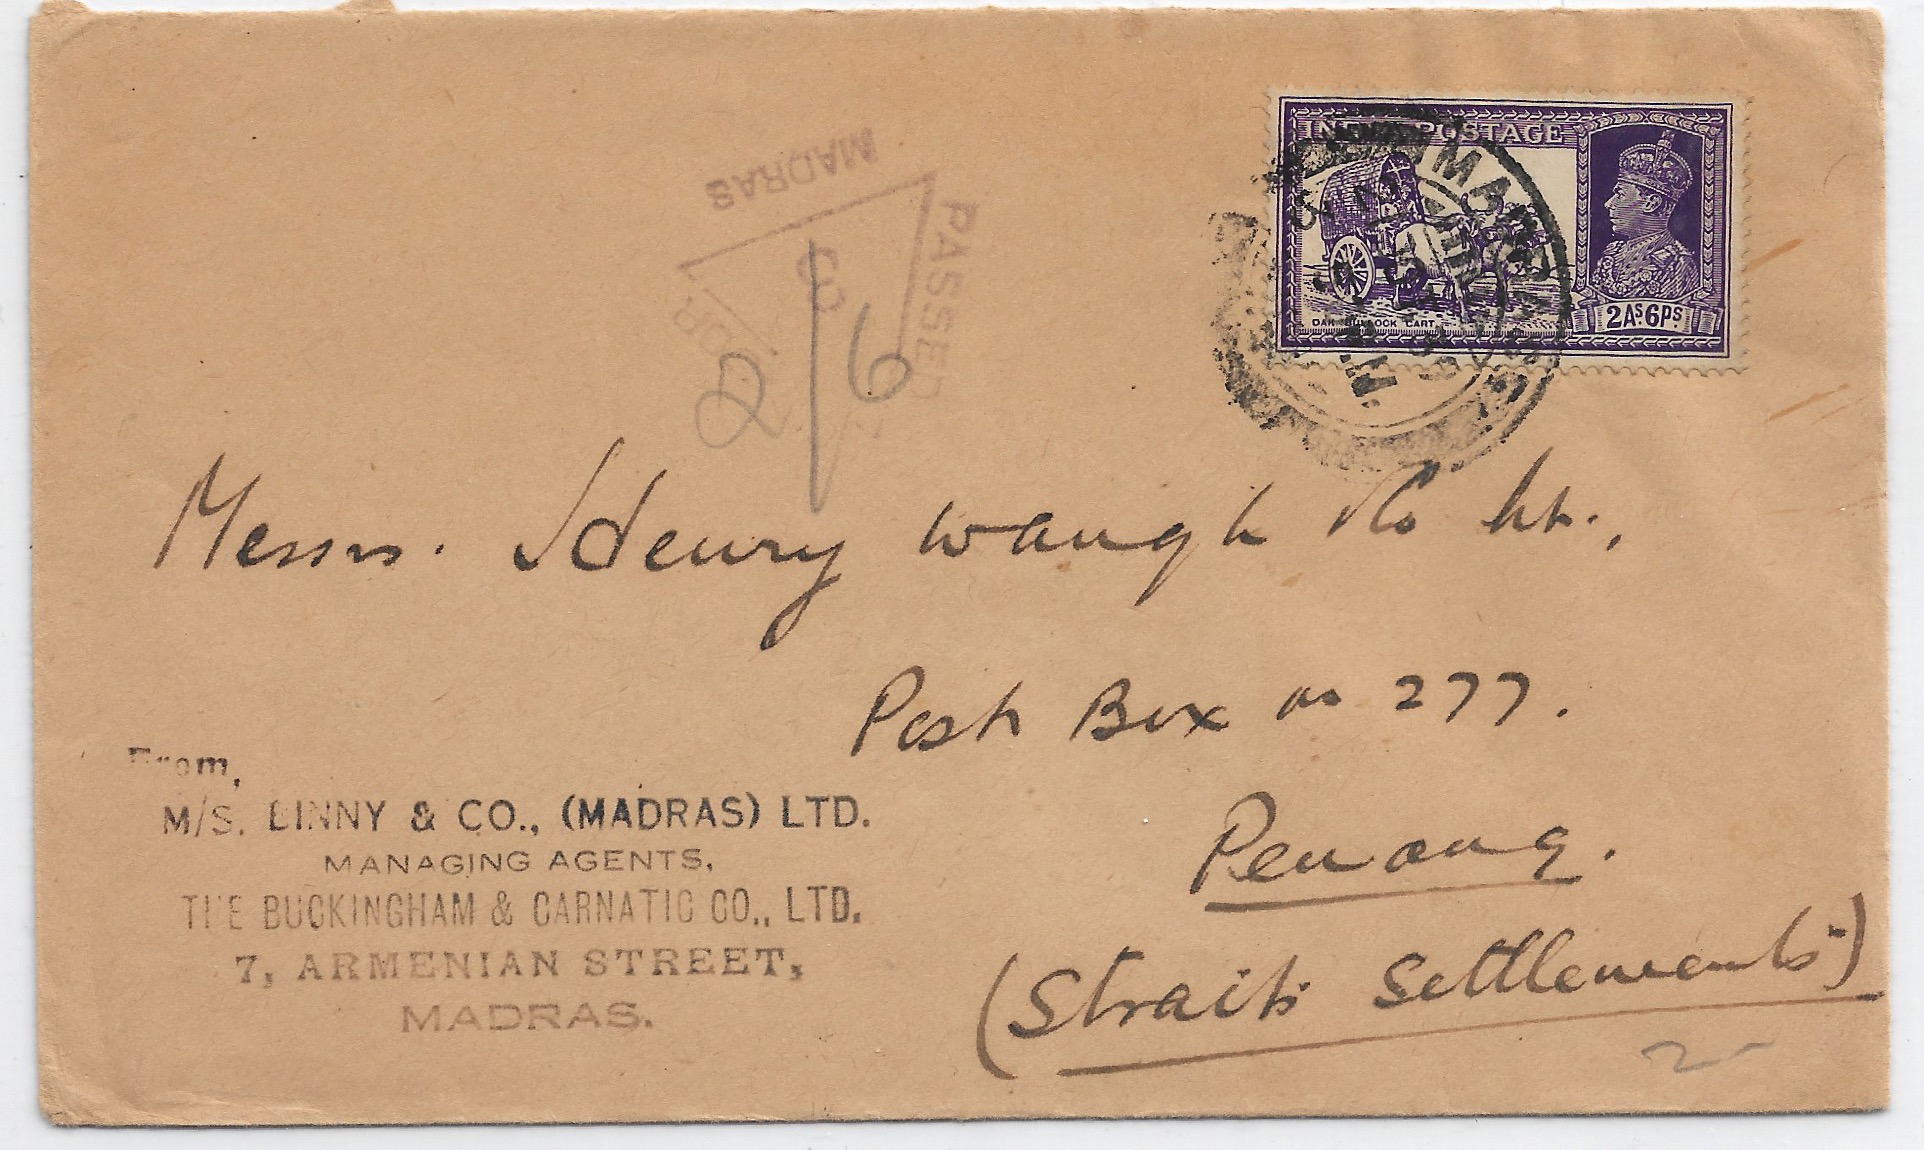 INDIA POSTAGE
2As6Ps
MADRAS
PASSED
3
2/6
Messrs. Henry Waugh & Co Lt.,
Post Box no 277.
Penang.
(Straits Settlements)
2
From,
M/S. BINNY & CO., (MADRAS) LTD.
MANAGING AGENTS,
THE BUCKINGHAM & CARNATIC CO., LTD.
7, ARMENIAN STREET,
MADRAS.